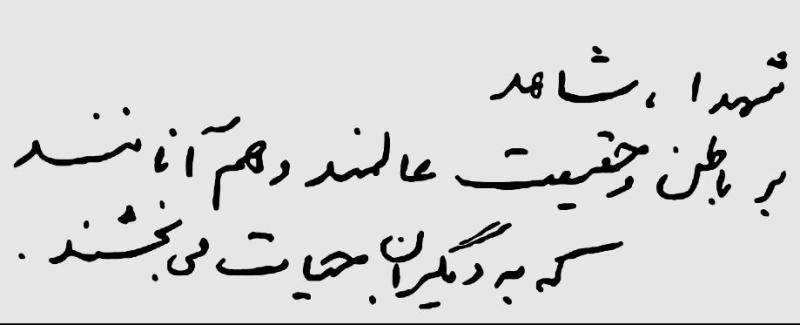 شهدا ، شاهد
بر باطن و حقیقت عالمند و هم آنانند
که به دیگران حیات می‌بخشند .